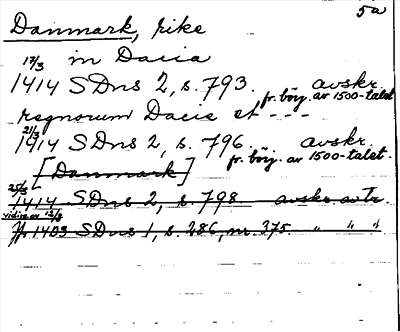 5a
Danmark, rike
in Dacia
17/3 1414 SDns 2, s. 793. avskr. fr. börj. av 1500-talet
regnorum Dacie et - - -
21/3 1414 SDns 2, s. 796. avskr. fr. börj. av 1500-talet.
[Danmark]
25/3 1414 SDns 2, s. 798 avskr
vidim av 12/8 1403 SDns 1, s. 286, nr. 375 " " "